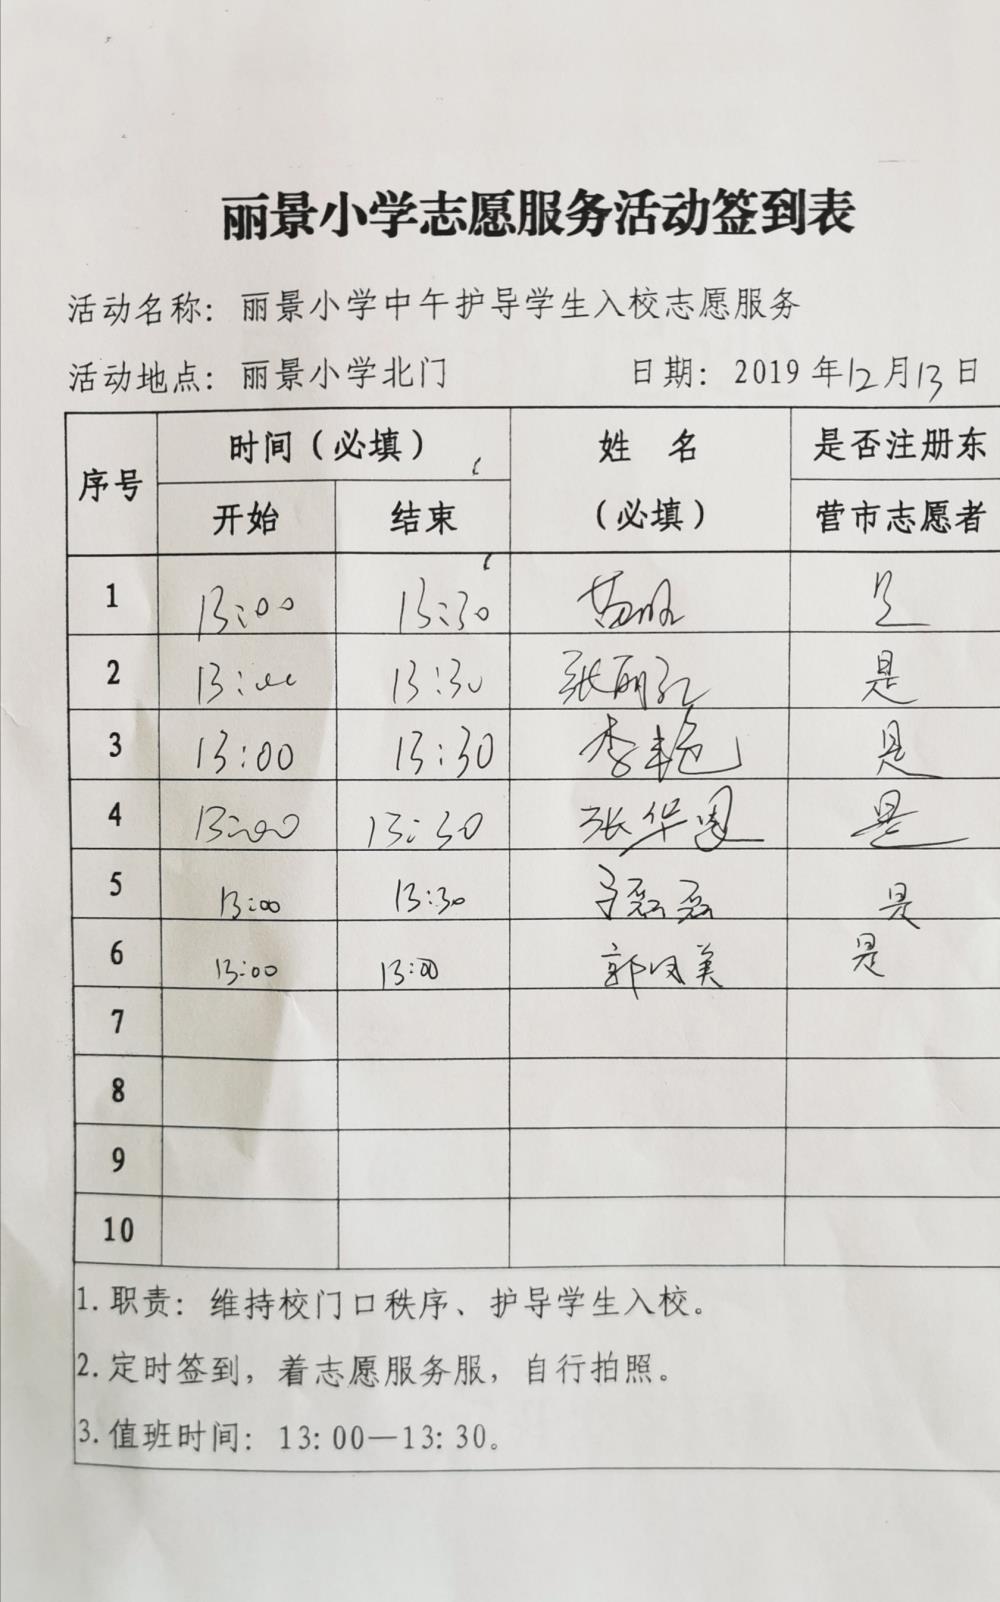 丽景小学志愿服务活动签到表
活动名称：丽景小学中午护导学生入校志愿服务
活动地点：丽景小学北门 日期：2019年12月13日
序号 时间（必填） 姓 名 是否注册东
开始 结束 （必填） 营市志愿者
1 13:00 13:30 是
2 13:00 13:30 张丽红 是
3 13:00 13:30 李艳 是
4 13:00 13:30 张华 是
5 13:00 13:30 于磊磊 是
6 13:00 13:00 郭凤美 是
7
8
9
10
1.职责：维持校门口秩序、护导学生入校。
2.定时签到，着志愿服务服，自行拍照。
3.值班时间：13:00—13:30。